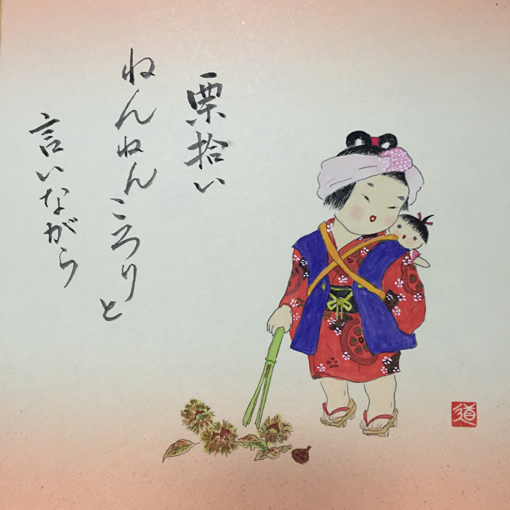 栗拾い
ねんねんころりと
言いながら
道